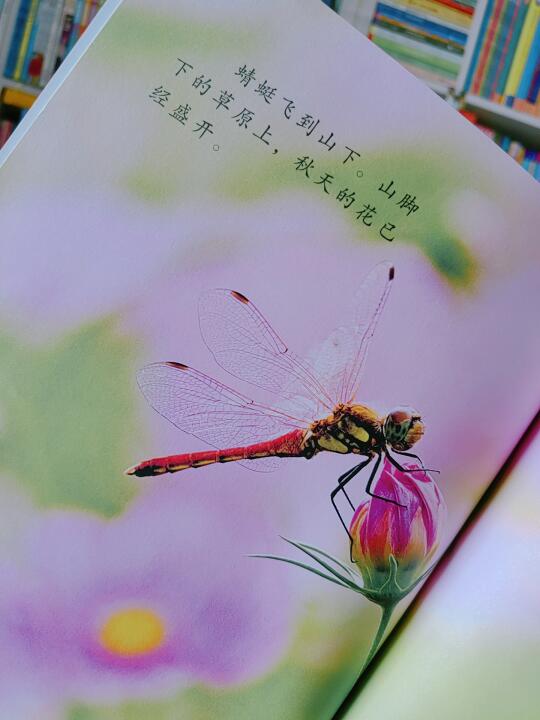 蜻蜓飞到山下。山脚
下的草原上，秋天的花已
经盛开。